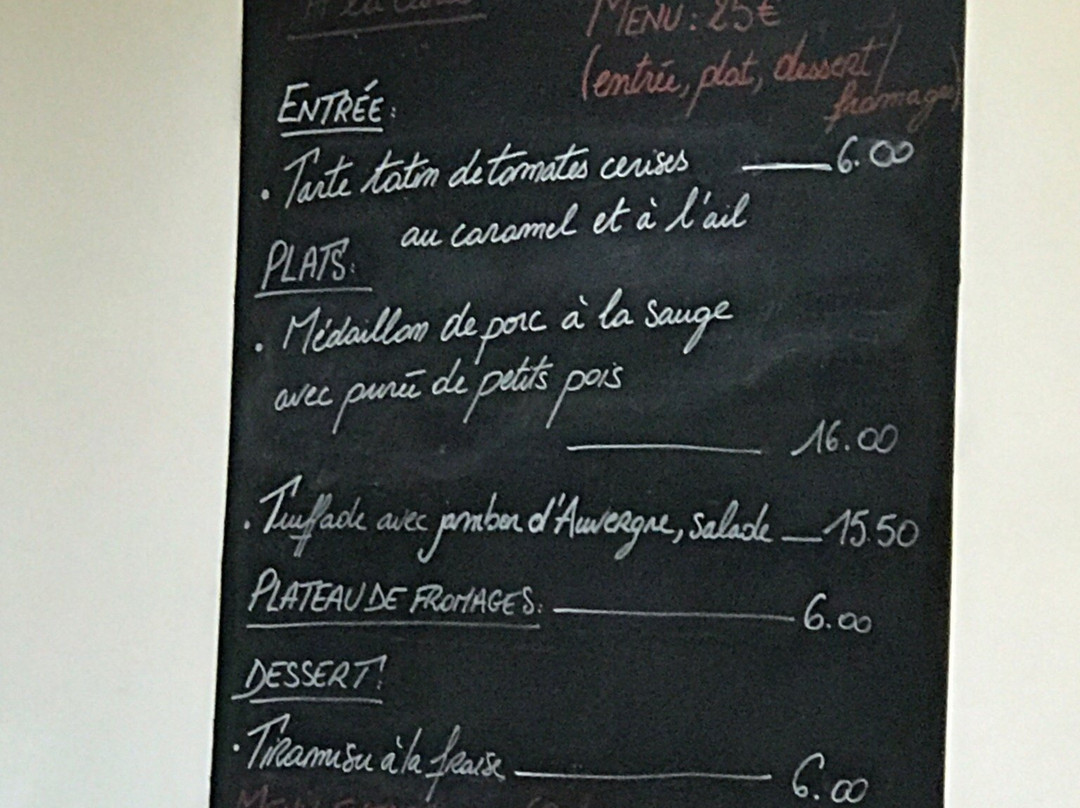 A la carte
MENU: 25€
(entrée, plat, dessert/
fromages)
ENTRÉE:
• Tarte tatin de tomates cerises — 6.00
au caramel et à l'ail
PLATS:
• Médaillon de porc à la sauge
avec purée de petits pois
— 16.00
• Truffade avec jambon d'Auvergne, salade — 15.50
PLATEAU DE FROMAGES: — 6.00
DESSERT:
• Tiramisu à la fraise — 6.00